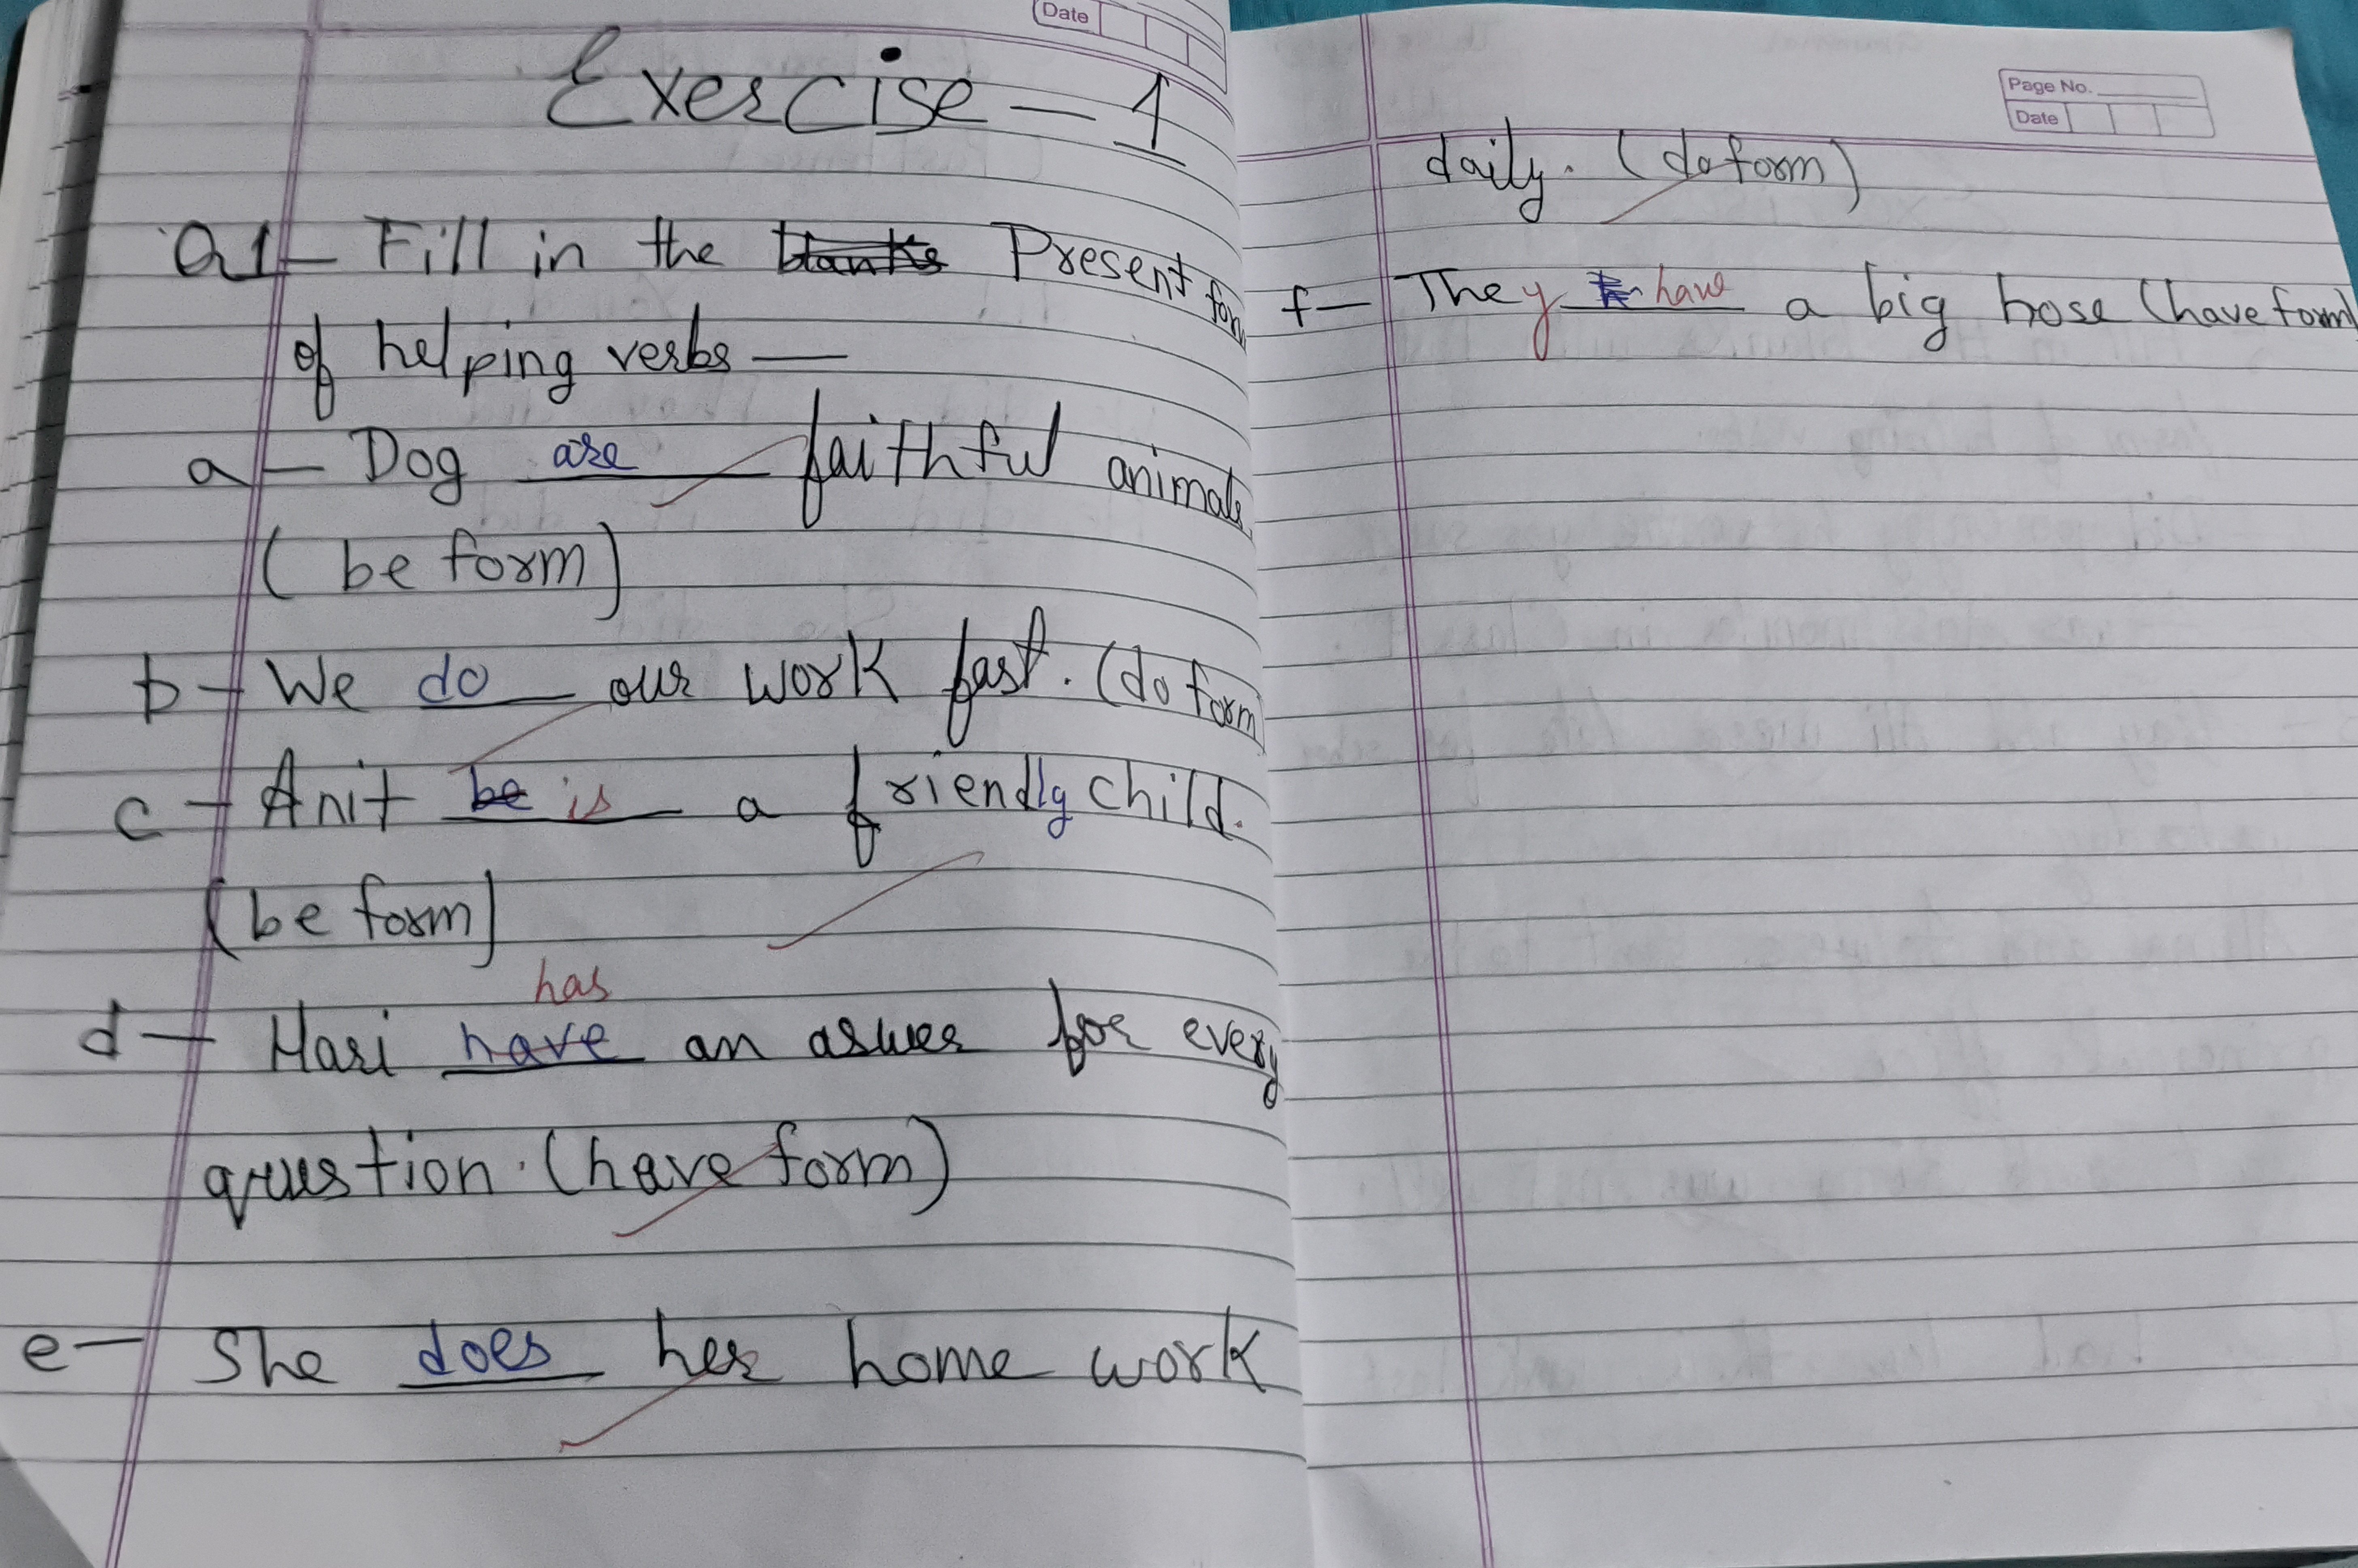 Date
Exercise - 1
Q1 - Fill in the blanks Present form
of helping verbs -
a - Dog are faithful animals
(be form)
b - We do our work fast. (do form
c - Anit be is a friendly child.
(be form)
has
d - Hari have an aswer for every
question. (have form)
e - She does her home work
Page No.
Date
daily. (do form)
f - They have a big hose (have form)